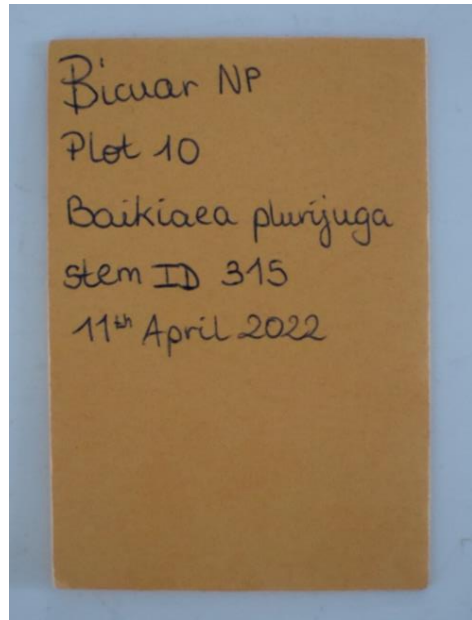 Bicuar NP
Plot 10
Baikiaea plurijuga
stem ID 315
11th April 2022